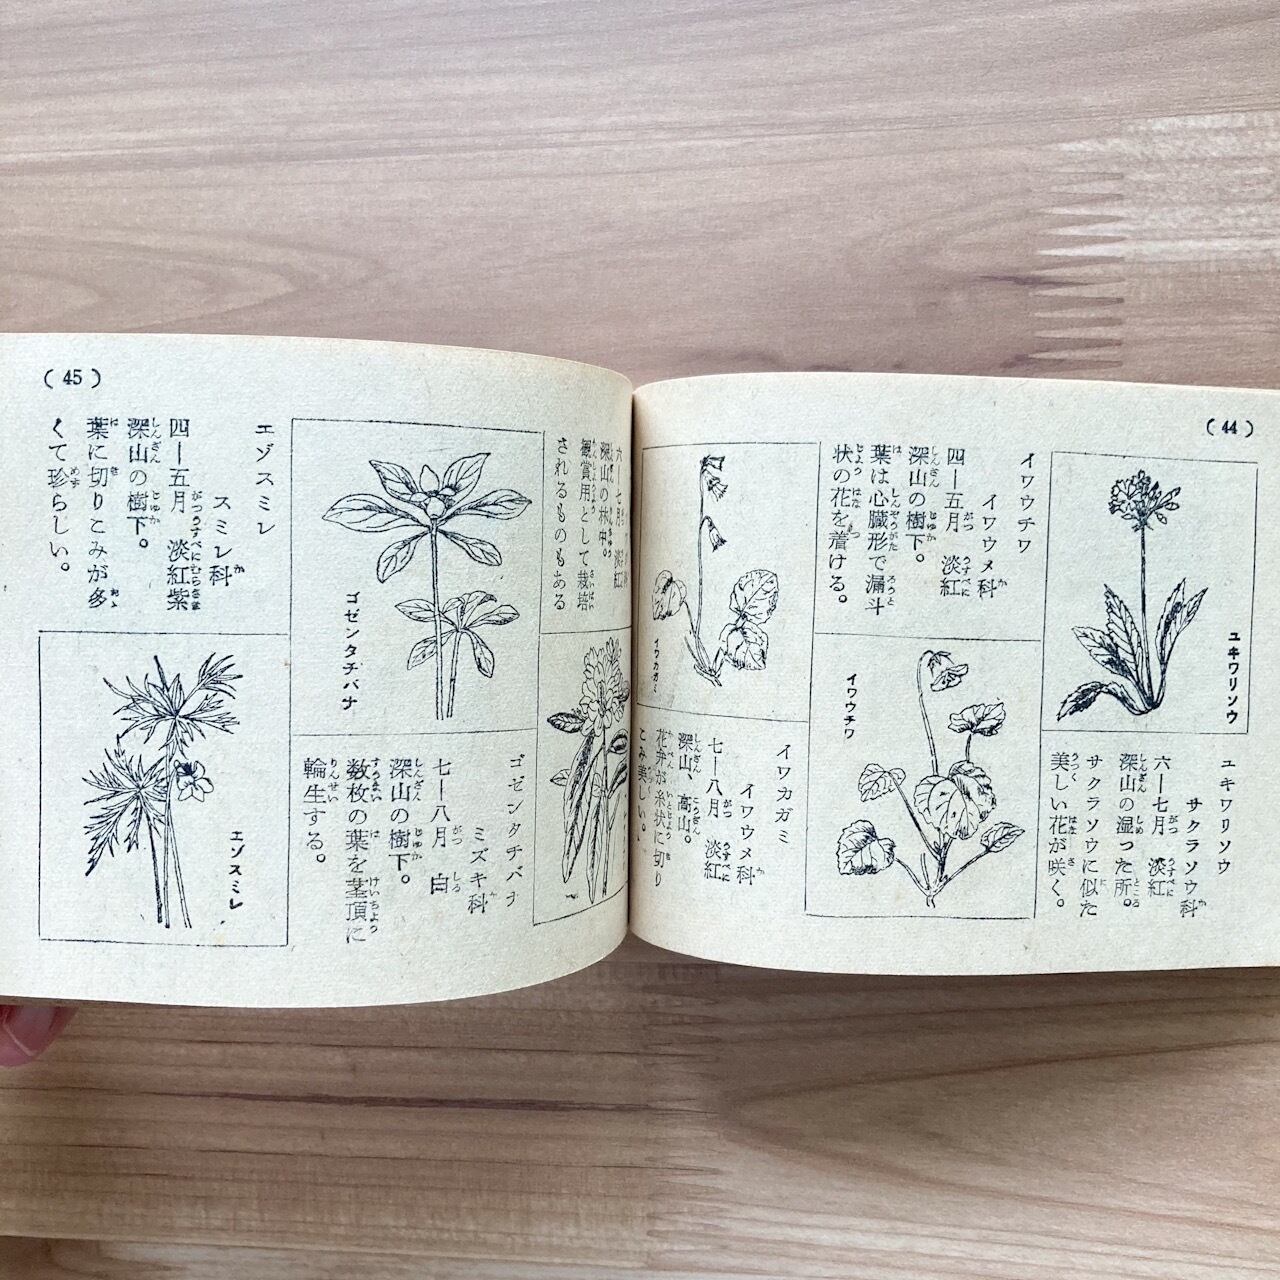 (44)
ユキワリソウ
ユキワリソウ
サクラソウ科
六—七月 淡紅
深山の湿った所。
サクラソウに似た
美しい花が咲く。
イワウチワ
イワウメ科
四—五月 淡紅
深山の樹下。
葉は心臓形で漏斗
状の花を着ける。
イワウチワ
イワカガミ
イワカガミ
イワウメ科
七—八月 淡紅
深山、高山。
花弁が糸状に切り
こみ美しい。
(45)
六—七月 淡紅
深山の林中。
観賞用として栽培
されるものもある
ゴゼンタチバナ
ゴゼンタチバナ
ミズキ科
七—八月 白
深山の樹下。
数枚の葉を茎頂に
輪生する。
エゾスミレ
スミレ科
四—五月 淡紅紫
深山の樹下。
葉に切りこみが多
くて珍らしい。
エゾスミレ